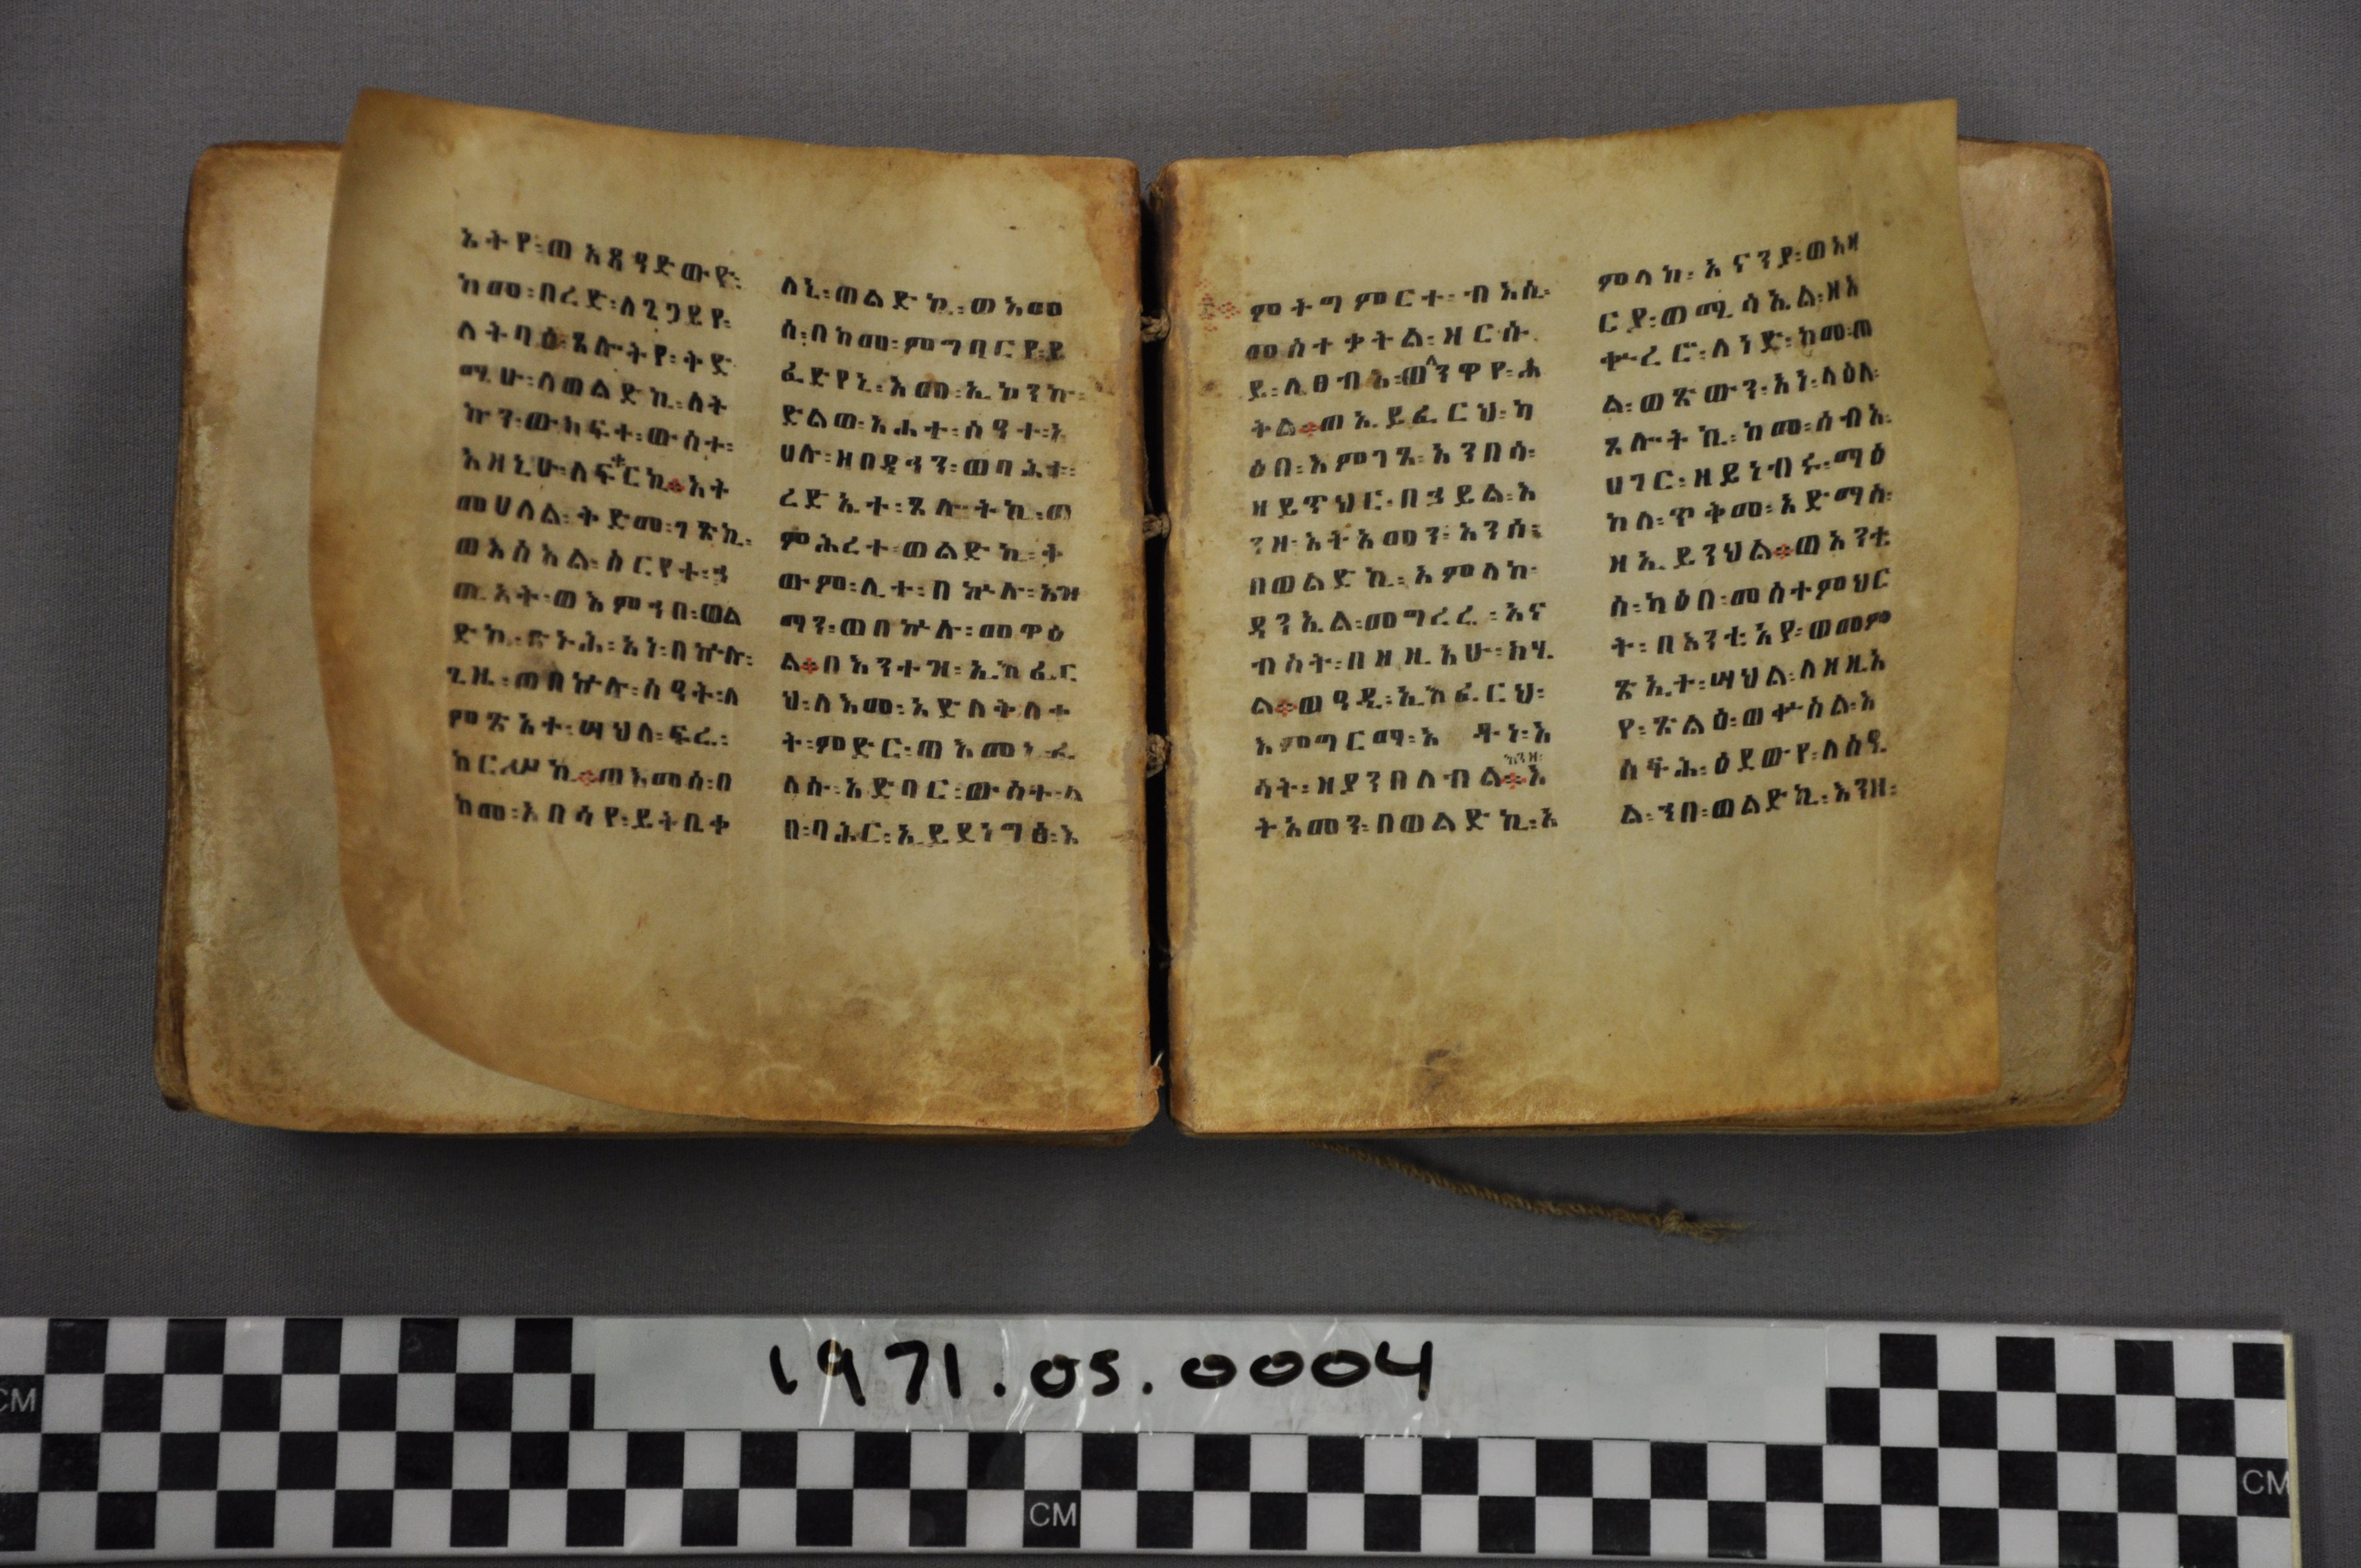 ኦትየ፡ወ አጸዳድውየ፡
ከመ፡በረድ፡ለጊጋይየ፡
ለትባዕ፡ጸሎትየ፡ትድ
ሚሁ፡ለወልድኪ፡ለት
ኩን፡ውክፍተ፡ውስተ፡
እዘኒሁ፡ለፍቁርኪ።እት
መሀለል፡ትድመ፡ገጽኪ፡
ወእስእል፡ስርየተ፡ኃ
ጢአት፡ወእምኀበ፡ወል
ድኪ፡ድኅሕ፡አነ፡በኵሉ፡
ጊዜ፡ወበኵሉ፡ሰዓት፡ለ
ምጽአተ፡ሣህለ፡ፍሬ፡
ከርሠኪ።ወእመሰ፡በ
ከመ፡አበሳየ፡ይትቤቀ
ለኒ፡ወልድኪ፡ወእመ
ሰ፡በከመ፡ምግባርየ፡ይ
ፈድየኒ፡እመ፡ኢኮንኩ፡
ድልወ፡አሐተ፡ሰዓተ፡አ
ሀሉ፡ዘበዳኅን፡ወባሕቱ፡
ረድኤተ፡ጸሎትኪ፡ወ
ምሕረተ፡ወልድኪ፡ት
ውም፡ሊተ፡በኵሉ፡አዝ
ማን፡ወበኵሉ፡መዋዕ
ል።በእንተዝ፡ኢከፈር
ህ፡ለእመ፡አድለቅለቀ
ት፡ምድር፡ወእመኒ፡ፈ
ለሱ፡አድባር፡ውስተ፡ል
በ፡ባሕር፡ኢይደነግፅ፡እ
ምትግምርተ፡ብእሲ፡
መስተቃትል፡ዘርሱ
ይ፡ሊፀብእ፡ወንዋየ፡ሐ
ቅል።ወኢይፈርህ፡ካ
ዕበ፡እምገጸ፡አንበሳ፡
ዘይጥህር፡በኃይል፡እ
ንዘ፡እትአመን፡አንሰ፡
በወልድኪ፡አምላከ፡
ዳንኤል፡መግረሬ፡አና
ብስት፡በዘዚአሁ፡ከሃ
ል።ወዓዲ፡ኢከፈርህ፡
እምግርማ፡አ ዳኅ፡አ
ሳት፡ዘያንበለብል።እ
እንዘ፡
ትአመን፡በወልድኪ፡አ
ምላከ፡አናንያ፡ወአዛ
ርያ፡ወሚሳኤል፡ዘአ
ቍረር፡ለነድ፡ከመ፡ጠ
ል፡ወጽውን፡አነ፡ላዕለ፡
ጸሎትኪ፡ከመ፡ሰብአ፡
ሀገር፡ዘይነብሩ፡ማዕ
ከለ፡ጥቅመ፡አድማስ፡
ዘኢይንህል።ወአንቲ
ሰ፡ካዕበ፡መስተምህር
ት፡በአንቲአየ፡ወመም
ጽኢተ፡ሣህል፡ለዘዚአ
የ፡ጼልዕ፡ወቍስል፡እ
ስፍሕ፡ዕደውየ፡ለሰዓ
ል፡ኀበ፡ወልድኪ፡እንዘ፡
1971.05.0004
CM
CM
CM